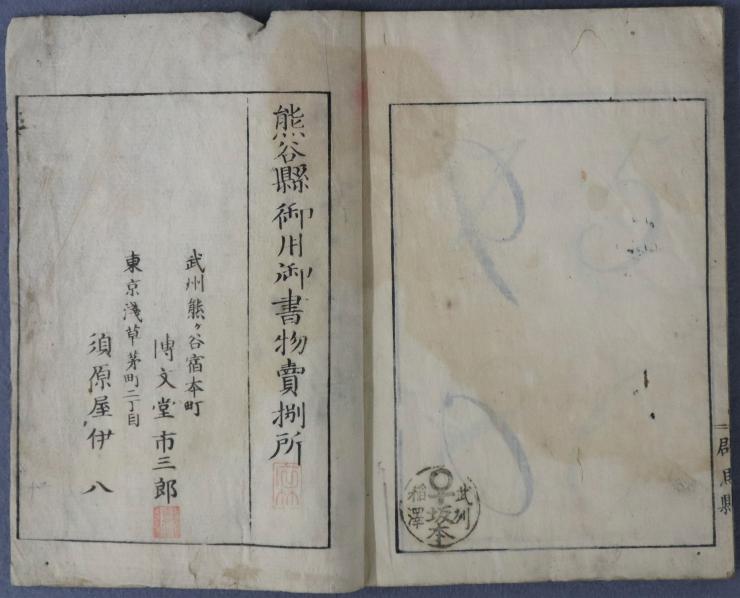 郡馬縣
武州
坂本
稻澤
熊谷縣御用御書物賣捌所
武州熊ヶ谷宿本町
博文堂市三郎
東京淺草茅町二丁目
須原屋伊八